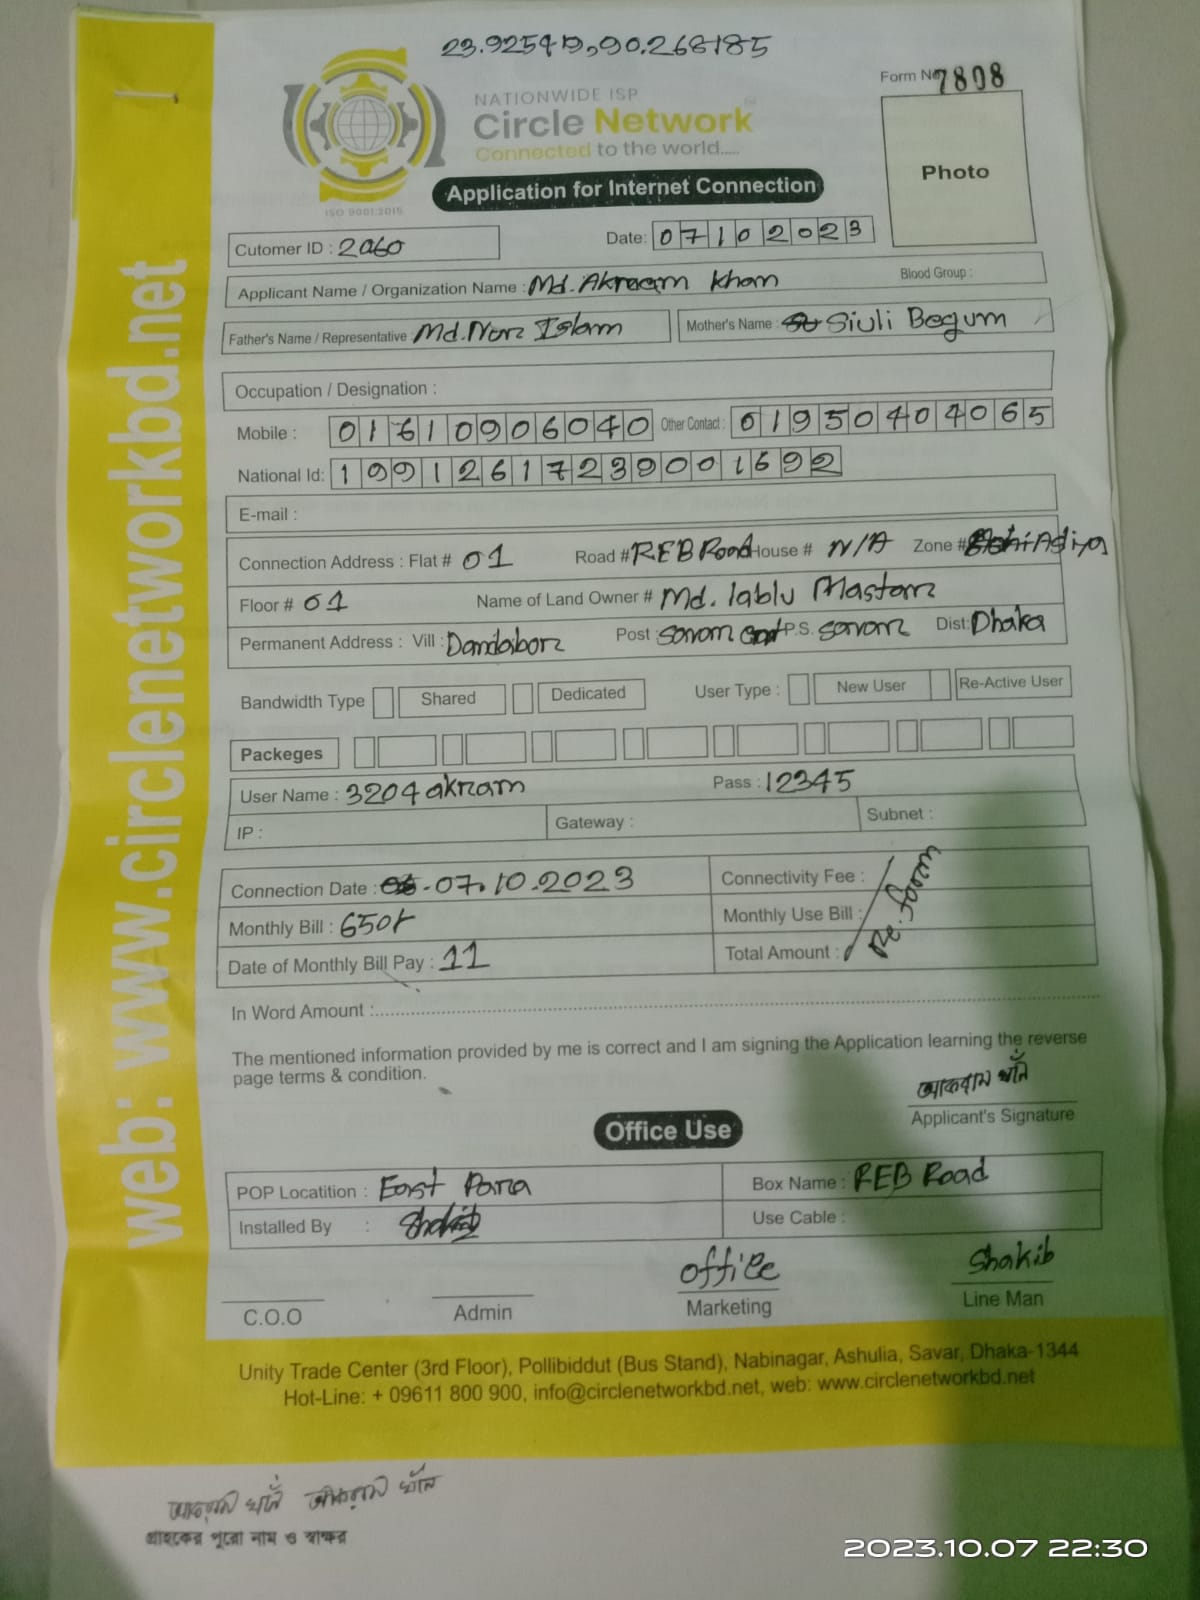 23.925419,90.268185
Form No 7808
NATIONWIDE ISP
Circle Network
Connected to the world.....
ISO 9001:2015
Photo
Application for Internet Connection
Cutomer ID : 2060
Date: 07102023
Applicant Name / Organization Name : Md. Akraam Khan
Blood Group :
Father's Name / Representative : Md. Nor Islam
Mother's Name : Siuli Begum
Occupation / Designation :
Mobile : 01610906040 Other Contact : 01950404065
National Id: 19912617239001692
E-mail :
Connection Address : Flat # 01 Road # REB Road House # N/A Zone #
Floor # 01 Name of Land Owner # Md. lablu Mastar
Permanent Address : Vill : Dandabor Post : savar P.S. savar Dist: Dhaka
Bandwidth Type Shared Dedicated User Type : New User Re-Active User
Packeges
User Name : 3204akram Pass : 12345
IP : Gateway : Subnet :
Connection Date : 07.10.2023 Connectivity Fee :
Monthly Bill : 650/- Monthly Use Bill :
Date of Monthly Bill Pay : 11 Total Amount :
In Word Amount :
The mentioned information provided by me is correct and I am signing the Application learning the reverse
page terms & condition.
আকরাম খাঁন
Applicant's Signature
Office Use
POP Locatition : East Para Box Name : REB Road
Installed By : Shakib Use Cable :
office Shakib
C.O.O Admin Marketing Line Man
Unity Trade Center (3rd Floor), Pollibiddut (Bus Stand), Nabinagar, Ashulia, Savar, Dhaka-1344
Hot-Line: + 09611 800 900, info@circlenetworkbd.net, web: www.circlenetworkbd.net
web: www.circlenetworkbd.net
আকরাম খাঁন আকরাম খাঁন
গ্রাহকের পুরো নাম ও স্বাক্ষর
2023.10.07 22:30